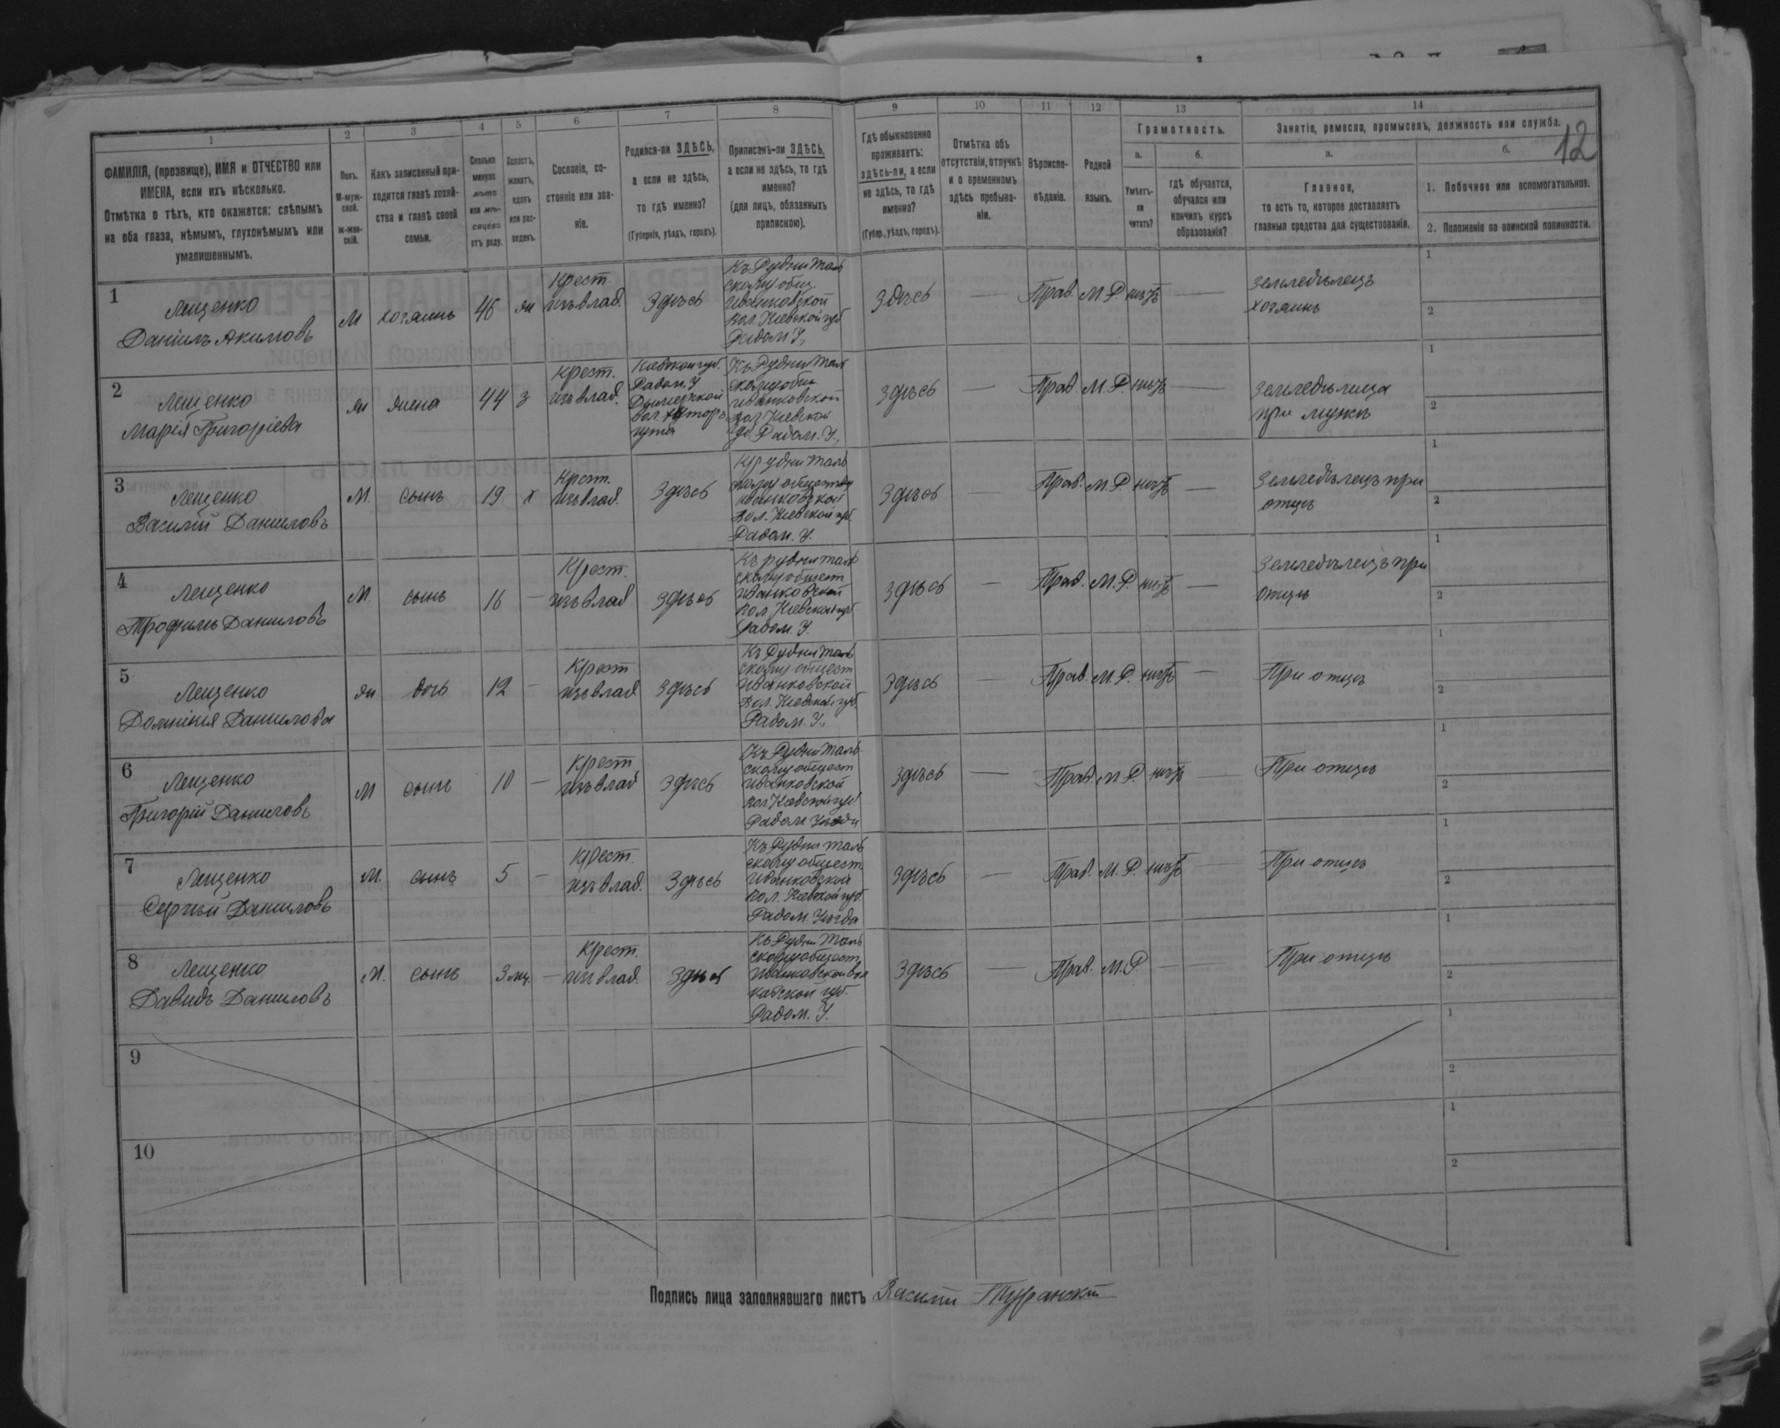 12
1 2 3 4 5 6 7 8 9 10 11 12 13 14
ФАМИЛІЯ, (прозвище), ИМЯ и ОТЧЕСТВО или
ИМЕНА, если ихъ нѣсколько.
Отмѣтка о тѣхъ, кто окажется: слѣпымъ
на оба глаза, нѣмымъ, глухонѣмымъ или
умалишеннымъ.
Полъ.
М-муж-
ской.
ж-жен-
скій.
Какъ записанный при-
ходится главѣ хозяй-
ства и главѣ своей
семьи.
Сколько
минуло
лѣтъ
или мѣ-
сяцевъ
отъ роду.
Холостъ,
женатъ,
вдовъ
или раз-
веденъ.
Сословіе, со-
стояніе или зва-
ніе.
Родился-ли ЗДѢСЬ,
а если не здѣсь,
то гдѣ именно?
(Губернія, уѣздъ, городъ).
Приписанъ-ли ЗДѢСЬ,
а если не здѣсь, то гдѣ
именно?
(для лицъ, обязанныхъ
припискою).
Гдѣ обыкновенно
проживаетъ:
здѣсь-ли, а если
не здѣсь, то гдѣ
именно?
(Губер., уѣздъ, городъ).
Отмѣтка объ
отсутствіи, отлучкѣ
и о временномъ
здѣсь пребыва-
ніи.
Вѣроиспо-
вѣданіе.
Родной
языкъ.
Грамотность.
а.
Умѣетъ-
ли
читать?
б.
гдѣ обучается,
обучался или
кончилъ курсъ
образованія?
Занятіе, ремесло, промыселъ, должность или служба.
а.
Главное,
то есть то, которое доставляетъ
главныя средства для существованія.
б.
1. Побочное или вспомогательное.
2. Положеніе по воинской повинности.
1
Лещенко
Даніилъ Акимовъ
М
хозяинъ
46
жн
Крест.
изъ влад.
Здѣсь
Къ Рудни Таль
скому общ.
Иванковской
вол. Кіевской губ
Радом У.
Здѣсь
—
Прав.
М.Р.
нѣтъ
—
Земледѣлецъ
хозяинъ
1
2
2
Лещенко
Марія Григоріева
ж
жена
44
з
Крест.
изъ влад.
Кіевской губ.
Радом. У
Дымерской
вол. хуторъ
Къ Рудни Таль
скому общ
Иванковской
вол Кіевской
Радом. У.
здѣсь
—
Прав
М.Р.
нѣтъ
—
Земледѣлица
при мужѣ
1
2
3
Лещенко
Василій Даниловъ
М.
сынъ
19
х
Крест.
изъ влад.
Здѣсь
Къ Рудни Таль
скому обществу
Иванковской
вол. Кіевской губ.
Радом. У.
Здѣсь
—
Прав.
М.Р.
нѣтъ
—
Земледѣлецъ при
отцѣ
1
2
4
Лещенко
Трофимъ Даниловъ
М
сынъ
16
—
Крест.
изъ влад
Здѣсь
Къ Рудни Таль
скому общест
Иванковской
вол. Кіевской губ
Радом. У.
здѣсь
—
Прав.
М.Р.
нѣтъ
—
Земледѣлецъ при
отцѣ
1
2
5
Лещенко
Домникія Данилова
ж
дочь
12
—
Крест
изъ влад
Здѣсь
Къ Рудни Таль
скому общест
Иванковской
вол. Кіевской губ.
Радом. У.
Здѣсь
—
Прав.
М.Р.
нѣтъ
—
При отцѣ
1
2
6
Лещенко
Григорій Даниловъ
М
сынъ
10
—
Крест
изъ влад
Здѣсь
Къ Рудни Таль
скому общест
Иванковской
вол Кіевской губ
Радом Уѣзда
здѣсь
—
Прав.
М.Р.
нѣтъ
—
При отцѣ
1
2
7
Лещенко
Сергѣй Даниловъ
М.
сынъ
5
—
Крест.
изъ влад.
Здѣсь
Къ Рудни Таль
скому общест
Иванковской
вол. Кіевской губ.
Радом. Уѣзда
здѣсь
—
Прав.
М.Р.
нѣтъ
—
При отцѣ
1
2
8
Лещенко
Давидъ Даниловъ
М.
сынъ
3 мц.
—
Крест.
изъ влад.
Здѣсь
Къ Рудни Таль
скому общест
Иванковской вол
Кіевской губ.
Радом. У.
Здѣсь
—
Прав.
М.Р
—
При отцѣ
1
2
9
1
2
10
1
2
Подпись лица заполнявшаго листъ Василий